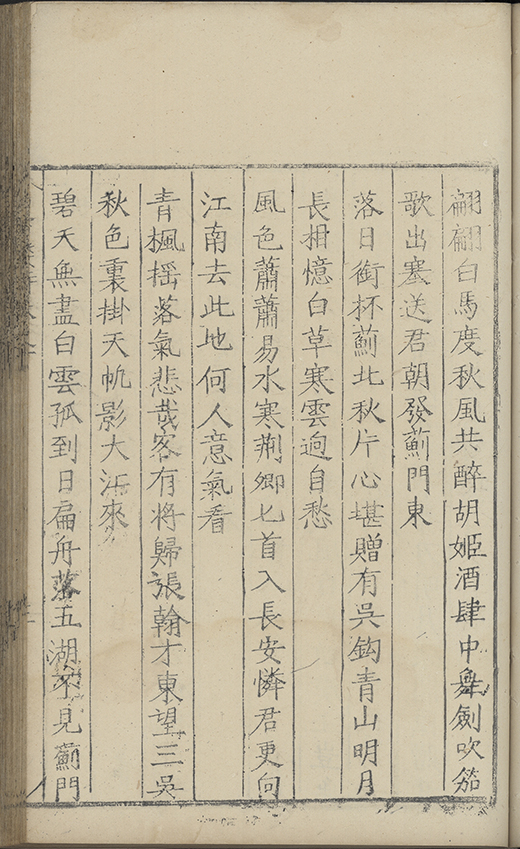 翩翩白馬度秋風共醉胡姬酒肆中舞劍吹笳
歌出塞送君朝發薊門東
落日銜杯薊北秋片心堪贈有吳鈎青山明月
長相憶白草寒雲迥自愁
風色蕭蕭易水寒荊卿匕首入長安憐君更向
江南去此地何人意氣看
青楓揺落氣悲哉客有將歸張翰才東望三吳
秋色裏掛天帆影大江來
碧天無盡白雲孤到日扁舟落五湖不見薊門